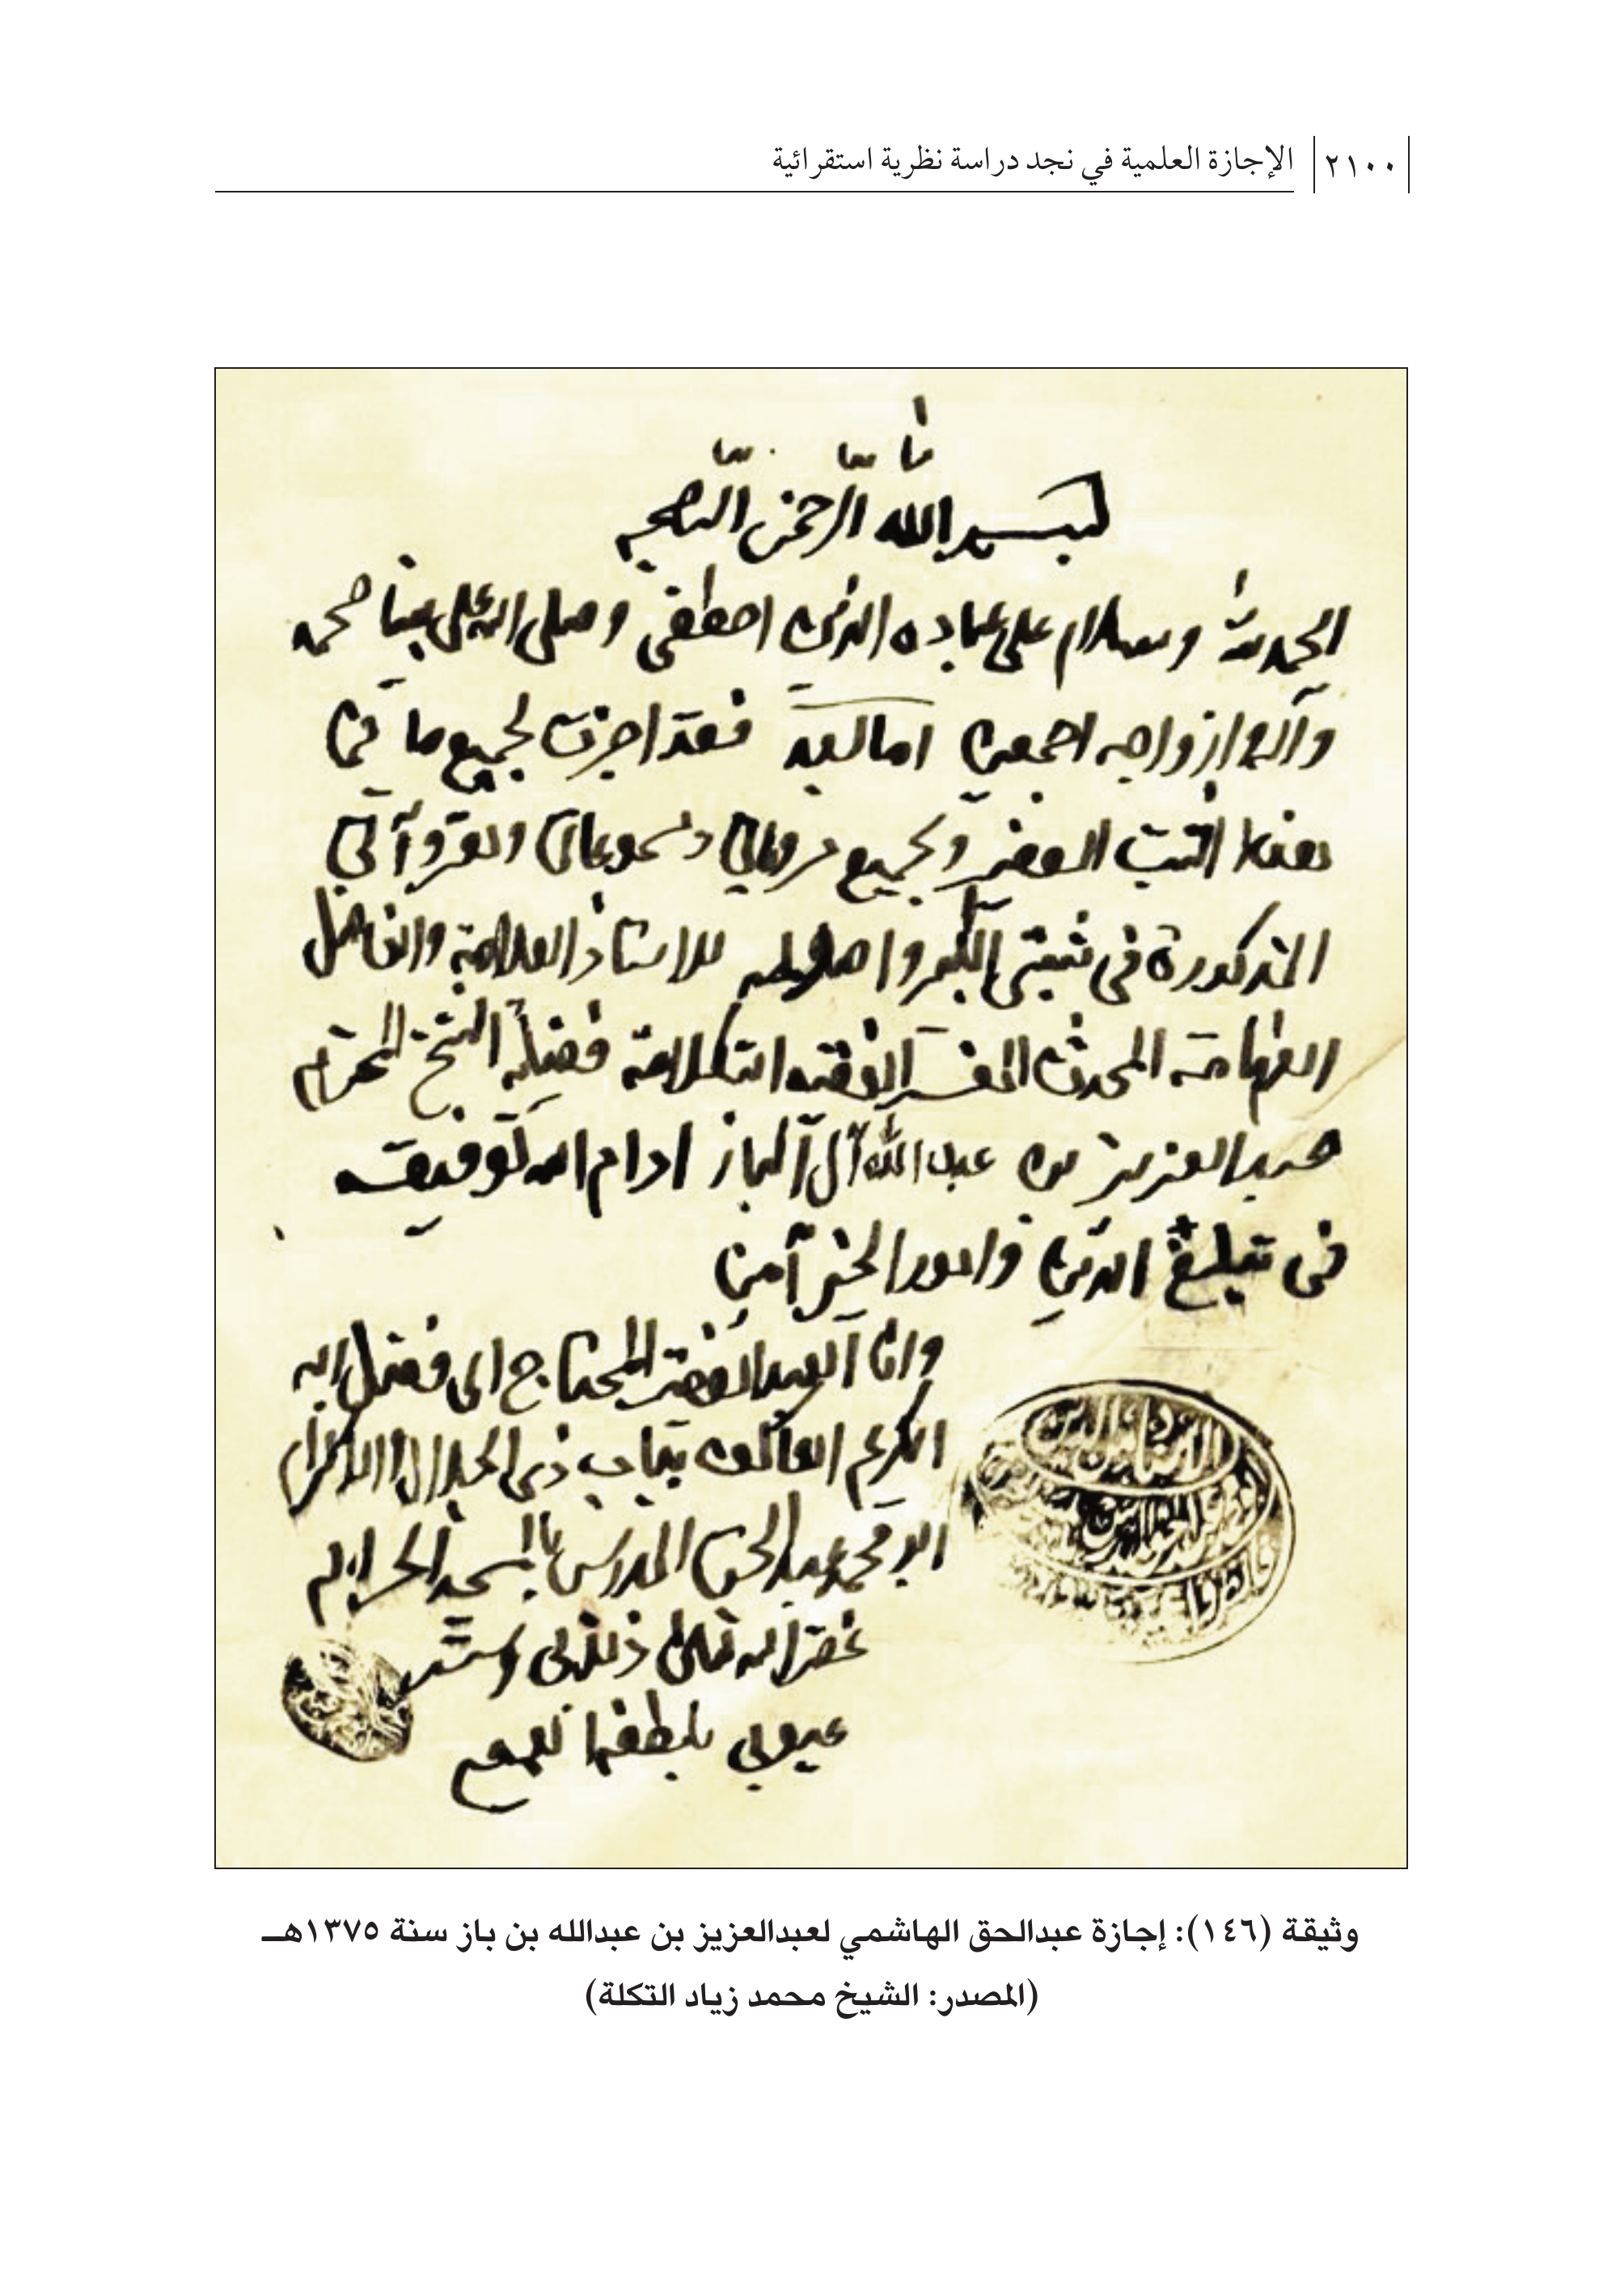 ٢١٠٠ الإجازة العلمية في نجد دراسة نظرية استقرائية
بسم الله الرحمن الرحيم
الحمد لله وسلام على عباده الذين اصطفى وصلى الله على نبينا محمد
وآله وازواجه اجمعين اما بعد فقد اجزت بجميع ما في
هذا الثبت الصغير وبجميع مروياتي ومسموعاتي ومقروآتي
المذكورة في ثبتي الكبير واصوله للاستاذ العلامة والفاضل
الفهامة المحدث المفسر الفقيه فضيلة الشيخ المحترم
عبد العزيز بن عبد الله آل الباز ادام الله توفيقه
في تبليغ الدين وامور الخير آمين
وانا العبد الفقير المحتاج الى فضل الله
الكريم العاكف بباب ذي الجلال والاكرام
ابو محمد عبد الحق المدرس بالمسجد الحرام
غفر الله تعالى ذنوبي وستر
عيوبي بلطفه
وثيقة (١٤٦): إجازة عبدالحق الهاشمي لعبدالعزيز بن عبدالله بن باز سنة ١٣٧٥هـ
(المصدر: الشيخ محمد زياد التكلة)